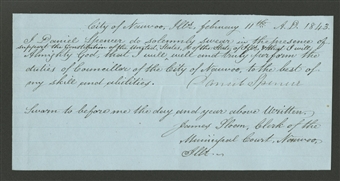 City of Nauvoo, Ills. February 11th A.D. 1843.
I Daniel Spencer do solemnly swear in the presence of
Almighty God, that I will well and truly perform the
duties of Councillor of the City of Nauvoo, to the best of
my skill and abilities. Daniel Spencer
Sworn to before me the day and year above written.
James Sloan, Clerk of the
Municipal Court, Nauvoo,
Ills.